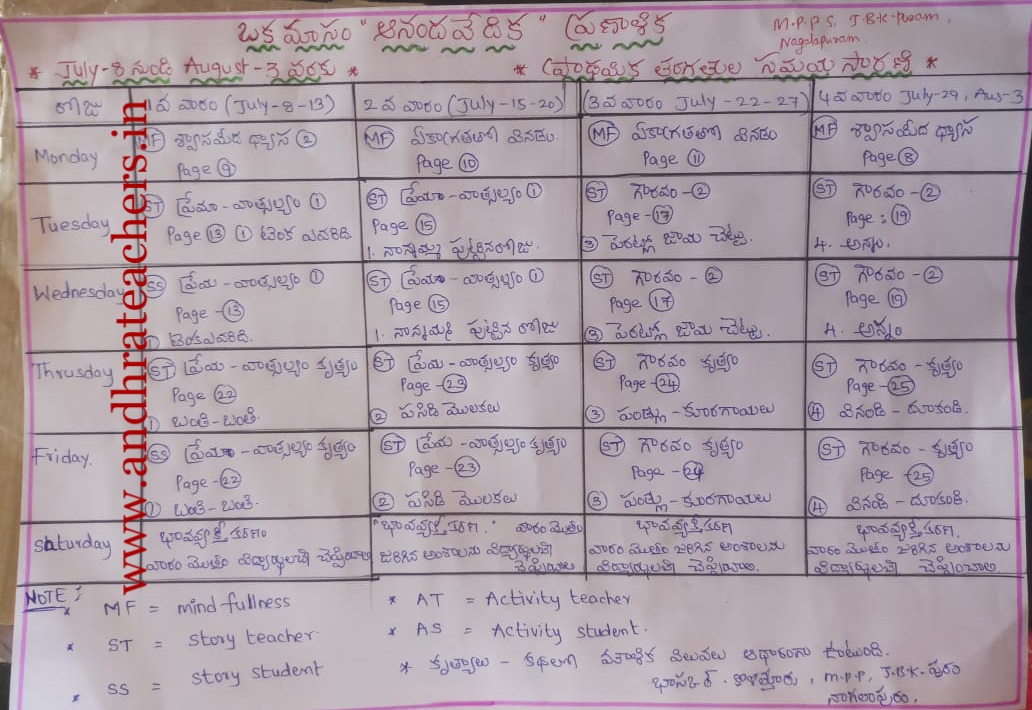 ఒక మాసం "ఆనందవేదిక" ప్రణాళిక
M.P.P.S, J.B.K-Puram,
Nagalapuram.
* July-8 నుండి August-3 వరకు *
* ప్రాథమిక తరగతుల సమయ సారణి *
రోజు
1వ వారం (July-8-13)
2 వ వారం (July-15-20)
(3 వ వారం July -22-27)
4వ వారం July-29, Aug-3
Monday
MF శ్వాసమీద ధ్యాస ②
Page ⑨
MF ఏకాగ్రతతో వినడం.
Page ⑩
MF ఏకాగ్రతతో వినడం
Page ⑪
MF శ్వాసమీద ధ్యాస
Page ⑧
Tuesday
ST ప్రేమా - వాత్సల్యం ①
Page ⑬ ① టెంక ఎవరిది
ST ప్రేమా - వాత్సల్యం ①
Page ⑮
1. నాన్నమ్మ పుట్టినరోజు.
ST గౌరవం - ②
Page - ⑰
③ పెరట్లో జామ చెట్టు.
ST గౌరవం - ②
Page : ⑲
4. అన్నం.
Wednesday
SS ప్రేమ - వాత్సల్యం ①
Page - ⑬
① టెంకఎవరిది.
ST ప్రేమా - వాత్సల్యం ①
Page ⑮
1. నాన్నమ్మ పుట్టిన రోజు
ST గౌరవం - ②
Page ⑰
③ పెరట్లో జామ చెట్టు.
ST గౌరవం - ②
Page ⑲
4. అన్నం
Thrusday
ST ప్రేమ - వాత్సల్యం కృత్యం
Page ㉒
① బంతి-బంతి.
ST ప్రేమ - వాత్సల్యం కృత్యం
Page - ㉓
② పసిడి మొలకలు
ST గౌరవం కృత్యం
Page - ㉔
③ పండ్లు - కూరగాయలు
ST గౌరవం - కృత్యం
Page - ㉕
④ వినండి - దూకండి.
Friday.
SS ప్రేమా - వాత్సల్యం కృత్యం
Page - ㉒
① బంతి- బంతి.
ST ప్రేమ - వాత్సల్యం కృత్యం
Page - ㉓
② పసిడి మొలకలు
ST గౌరవం కృత్యం
Page - ㉔
③ పండ్లు - కూరగాయలు
ST గౌరవం - కృత్యం
Page - ㉕
④ వినండి - దూకండి.
Saturday
భావవ్యక్తీకరణం
వారం మొత్తం విద్యార్థులచే చెప్పించాలి
"భావవ్యక్తీకరణ." వారం మొత్తం
జరిగిన అంశాలను విద్యార్థులచే
చెప్పించాలి
భావవ్యక్తీకరణ
వారం మొత్తం జరిగిన అంశాలను
విద్యార్థులచే చెప్పించాలి.
భావవ్యక్తీకరణ
వారం మొత్తం జరిగిన అంశాలను
విద్యార్థులచే చెప్పించాలి.
NOTE :
* MF = mind fullness
* ST = story teacher.
* SS = story student
* AT = Activity teacher
* AS = Activity student.
* కృత్యాలు - కథలలోని విలువలు ఆధారంగా ఉంటుంది.
భాస్కర్, M.P.P, J.B.K-పురం
నాగలాపురం.
www.andhrateachers.in